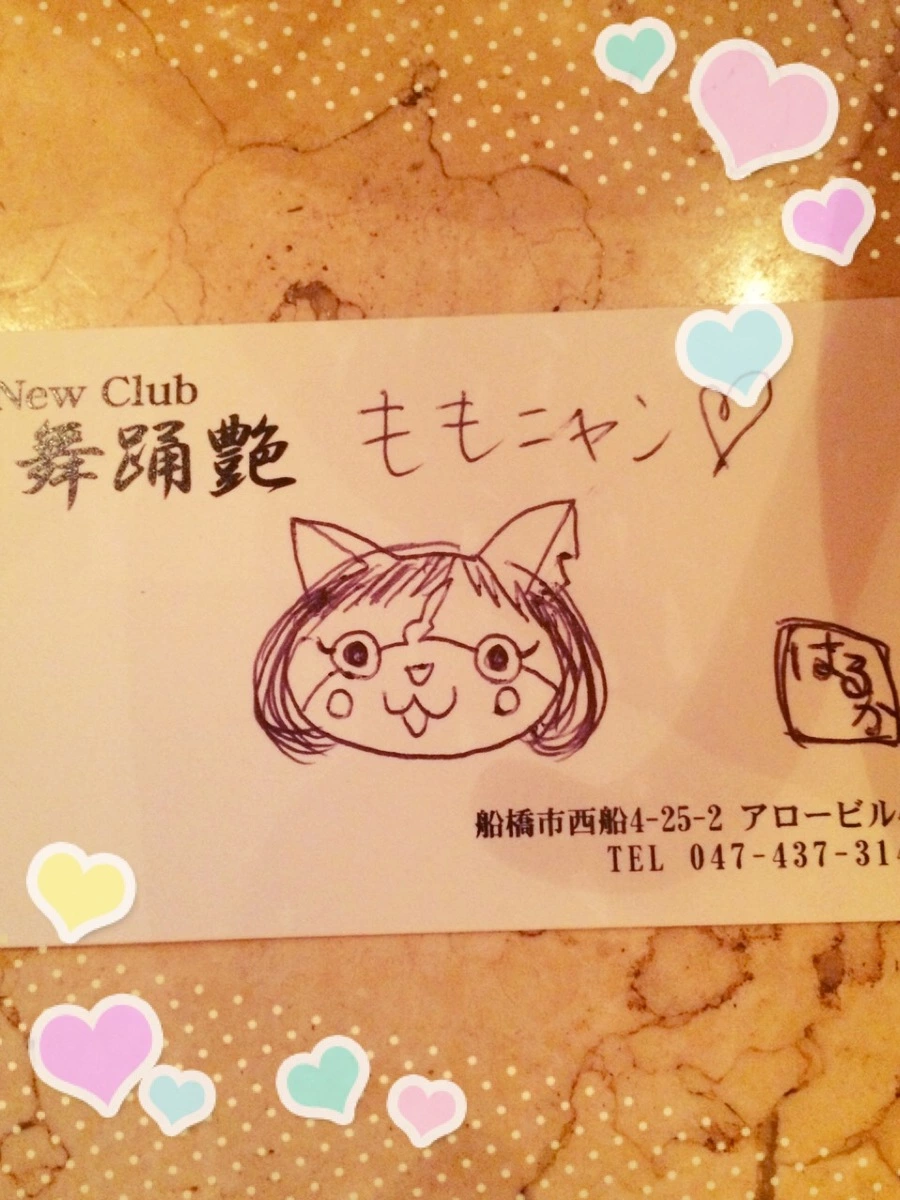 New Club
舞踊艶
ももニャン♡
はるか
船橋市西船4-25-2 アロービル
TEL 047-437-314